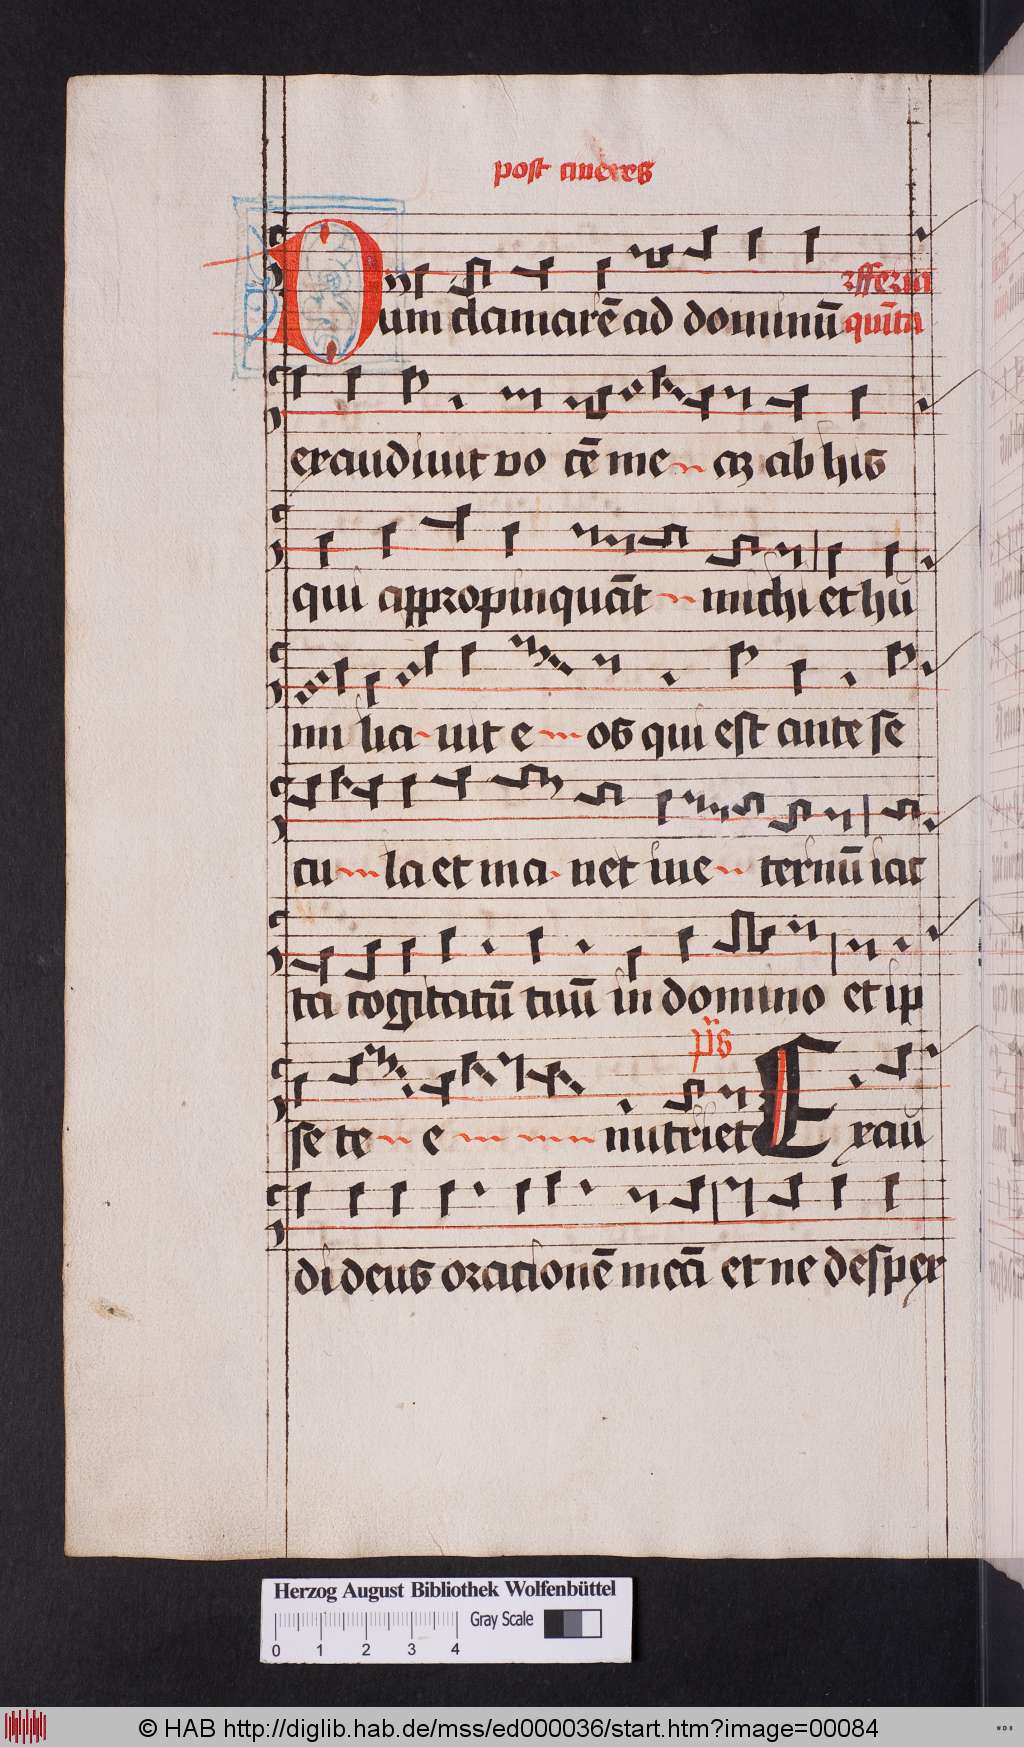 post cineres
Dum clamarē ad dominū
ꝛfferia
quīta
exaudiuit vo cē me aꝫ ab his
qui appropinquāt michi et hu
mi lia uit e os qui est ante se
cu la et ma net ine ternū iac
ta cogitatū tuū in domino et ip
pˢ
se te e nutriet Exau
di deus orationē meā et ne desper
Herzog August Bibliothek Wolfenbüttel
Gray Scale
0 1 2 3 4
© HAB http://diglib.hab.de/mss/ed000036/start.htm?image=00084